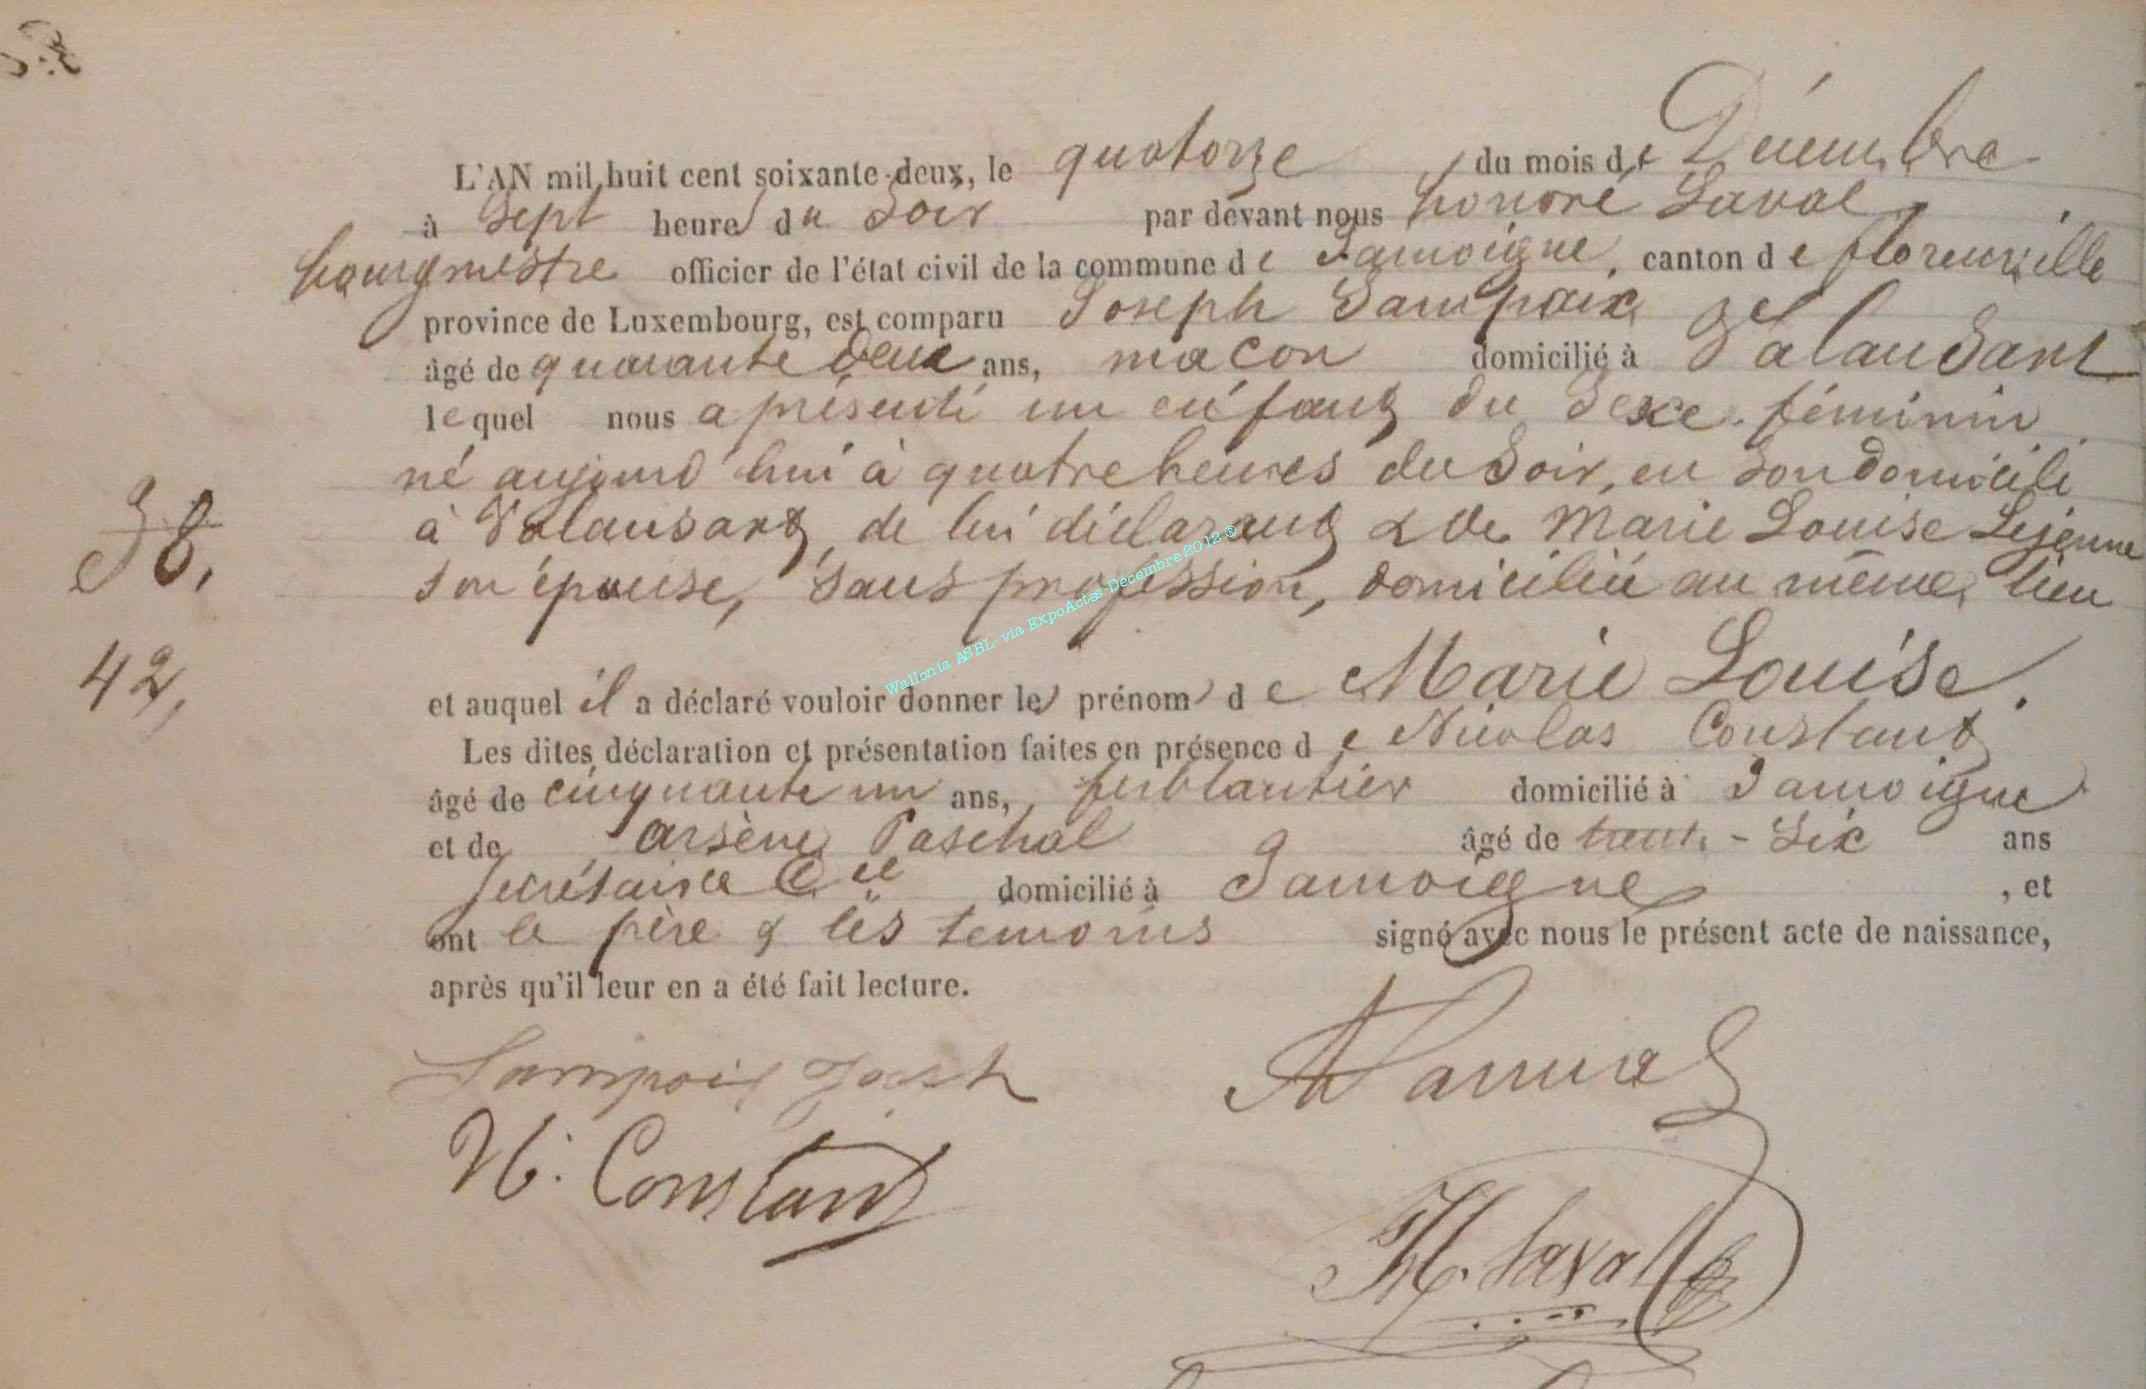 L'AN mil huit cent soixante-deux, le quatorze du mois de Décembre
à Sept heures du Soir par devant nous honoré Laval
bourgmestre officier de l'état civil de la commune de Jamoigne, canton de florenville
province de Luxembourg, est comparu Joseph Sampoix
âgé de quarante deux ans, macon domicilié à Valansart
lequel nous a présenté un enfant du Sexe féminin
né aujourd'hui à quatre heures du Soir, en son domicile
à Valansart, de lui déclarant & de Marie Louise Lejeune
38.
son épouse, sans profession, domiciliée au même lieu
42,
et auquel il a déclaré vouloir donner les prénoms de Marie Louise.
Les dites déclaration et présentation faites en présence de Nicolas Constant
âgé de cinquante un ans, ferblantier domicilié à Jamoigne
et de arsène Paschal âgé de trente-Six ans
Secrétaire Cal domicilié à Jamoigne, et
ont le père & les témoins signé avec nous le présent acte de naissance,
après qu'il leur en a été fait lecture.
Sampoix Josph
N. Constant
H. Laval
Wallonia ASBL via ExpoActes Decembre 2012 ©